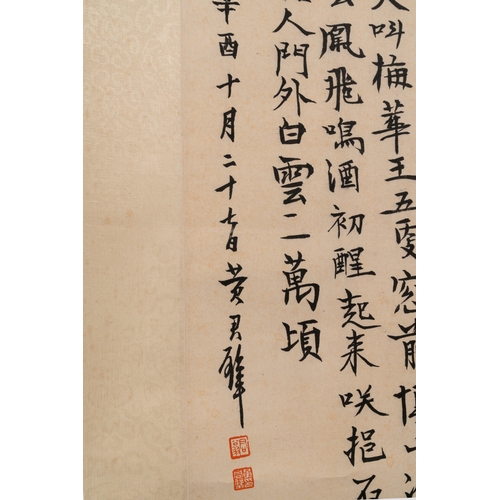 叫梅華王五更窓前博山
鳳飛鳴酒初醒起来咲挹石
人門外白雲二萬頃
辛酉十月二十七日黄君璧